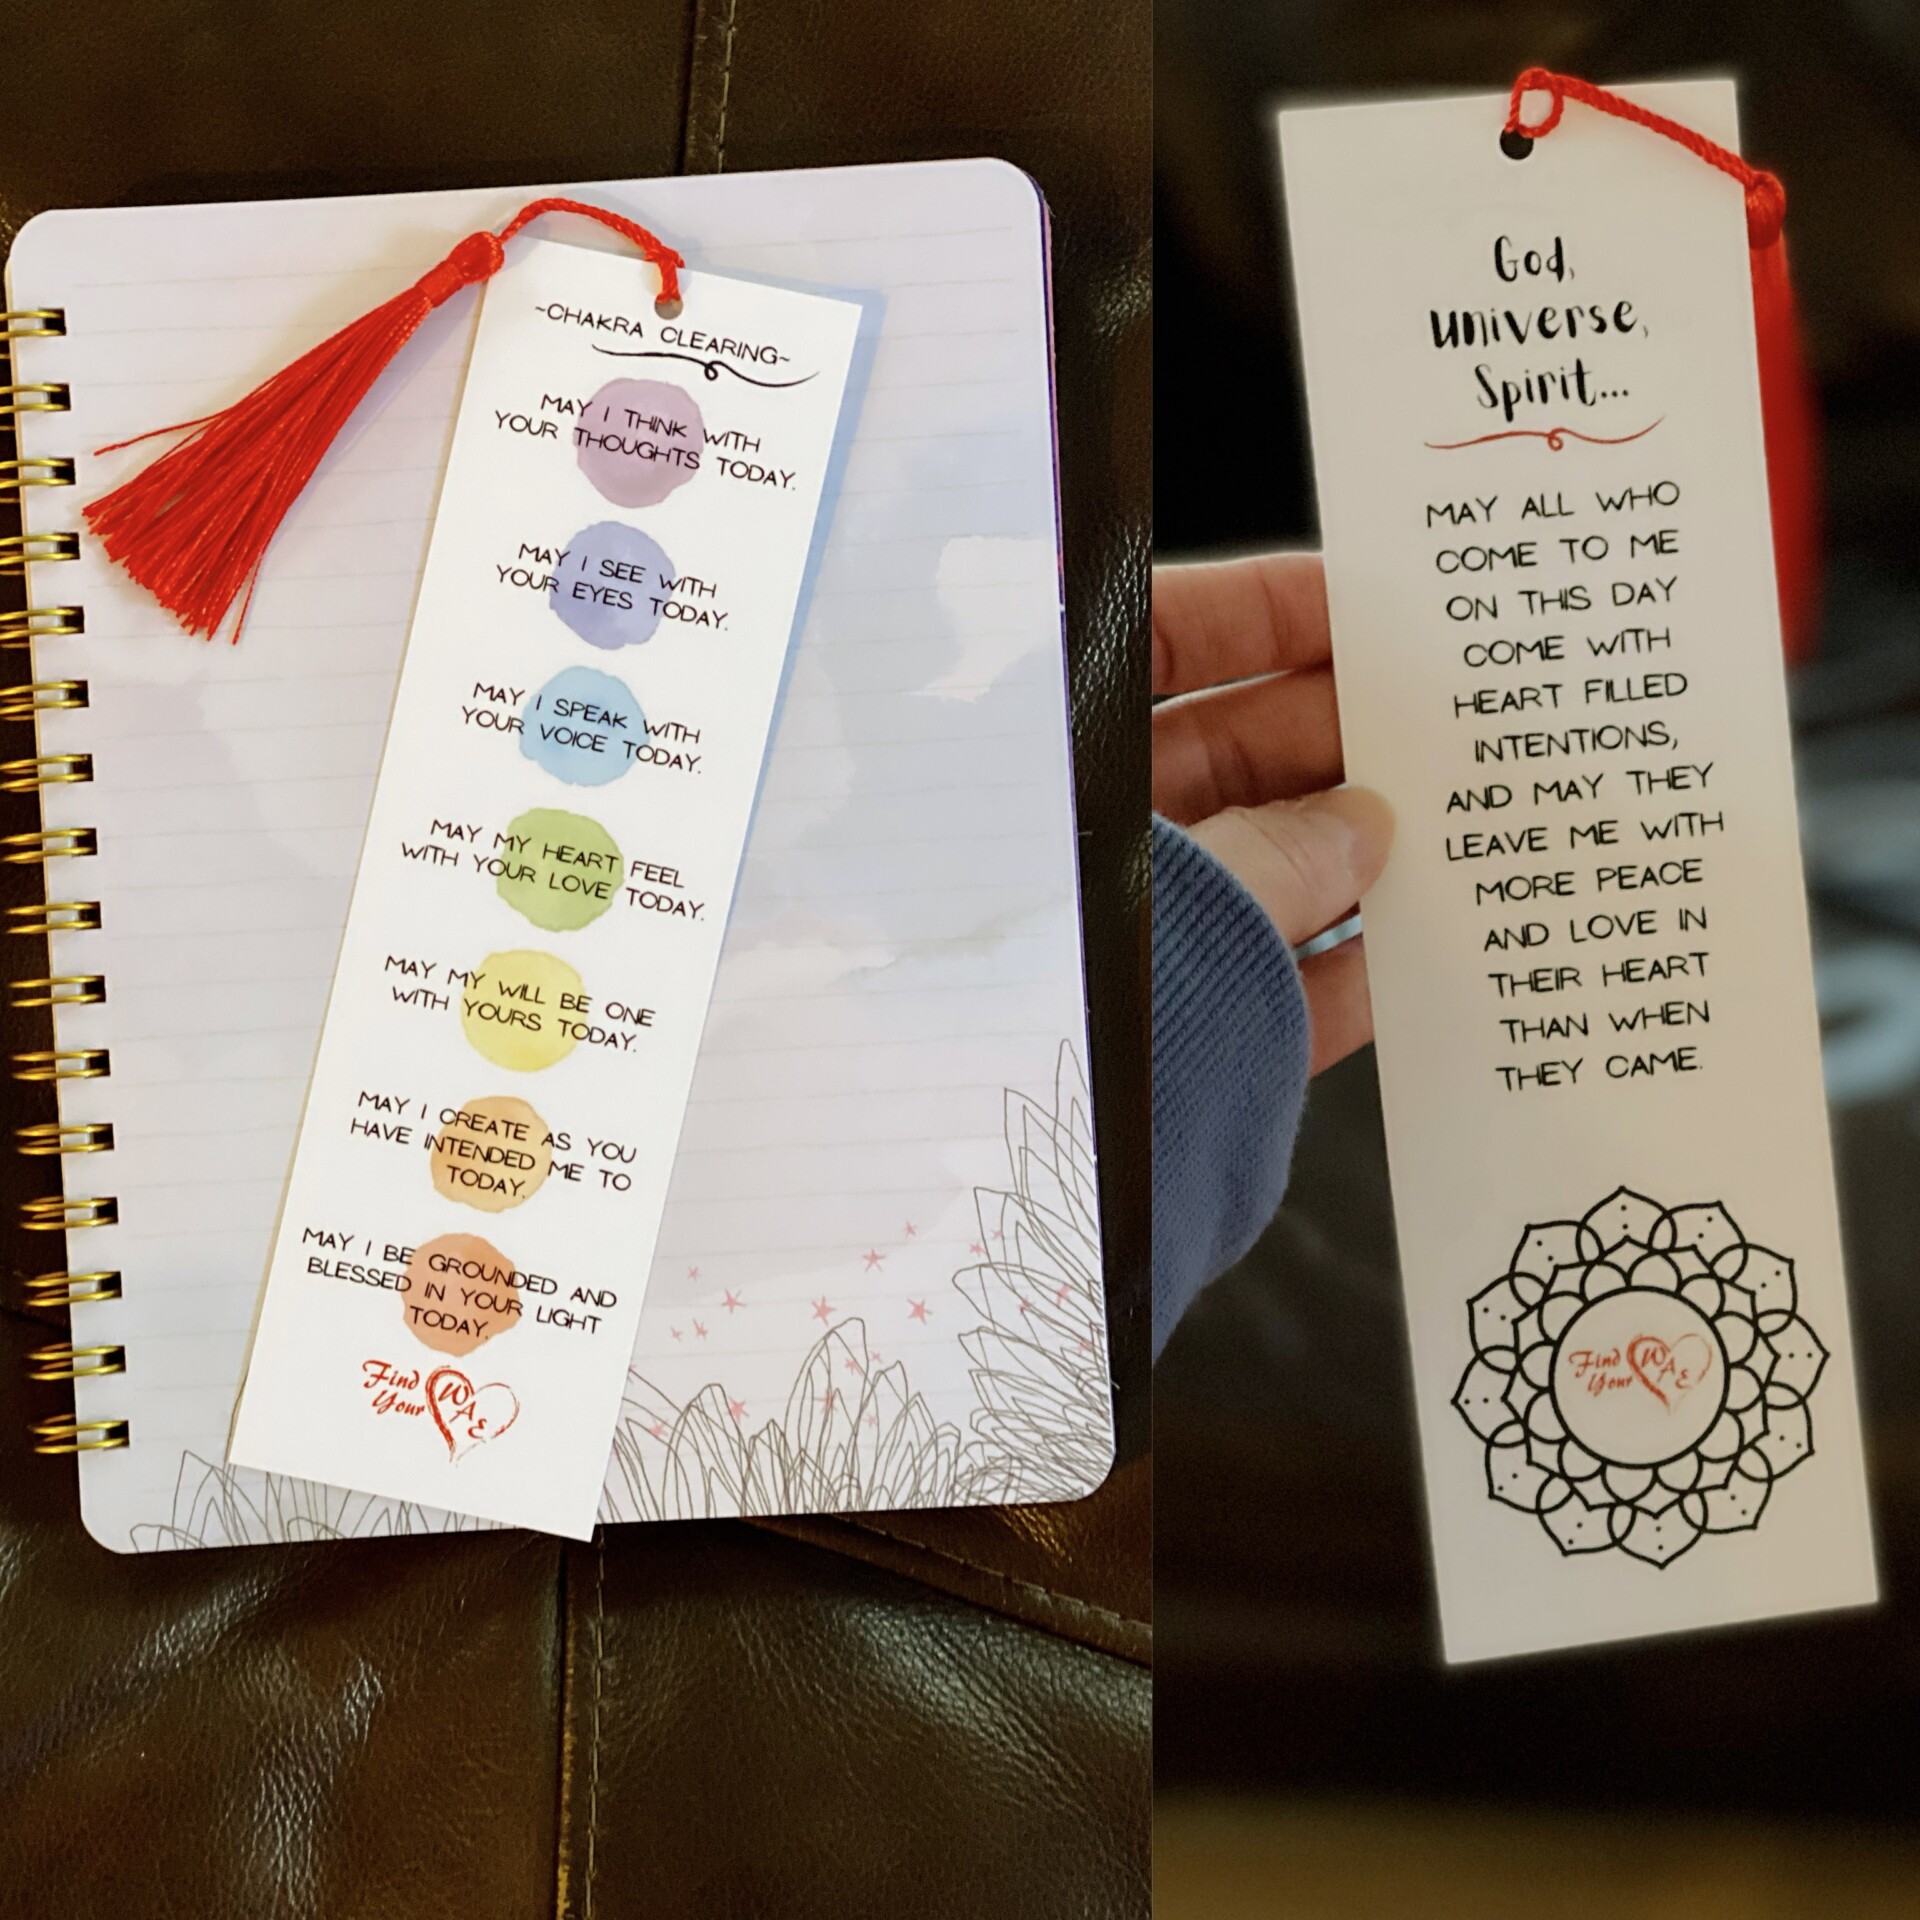 ~CHAKRA CLEARING~
MAY I THINK WITH
YOUR THOUGHTS TODAY.
MAY I SEE WITH
YOUR EYES TODAY.
MAY I SPEAK WITH
YOUR VOICE TODAY.
MAY MY HEART FEEL
WITH YOUR LOVE TODAY.
MAY MY WILL BE ONE
WITH YOURS TODAY.
MAY I CREATE AS YOU
HAVE INTENDED ME TO
TODAY.
MAY I BE GROUNDED AND
BLESSED IN YOUR LIGHT
TODAY.
Find
Your
WAE
God,
universe,
Spirit...
MAY ALL WHO
COME TO ME
ON THIS DAY
COME WITH
HEART FILLED
INTENTIONS,
AND MAY THEY
LEAVE ME WITH
MORE PEACE
AND LOVE IN
THEIR HEART
THAN WHEN
THEY CAME.
Find
Your
WAE